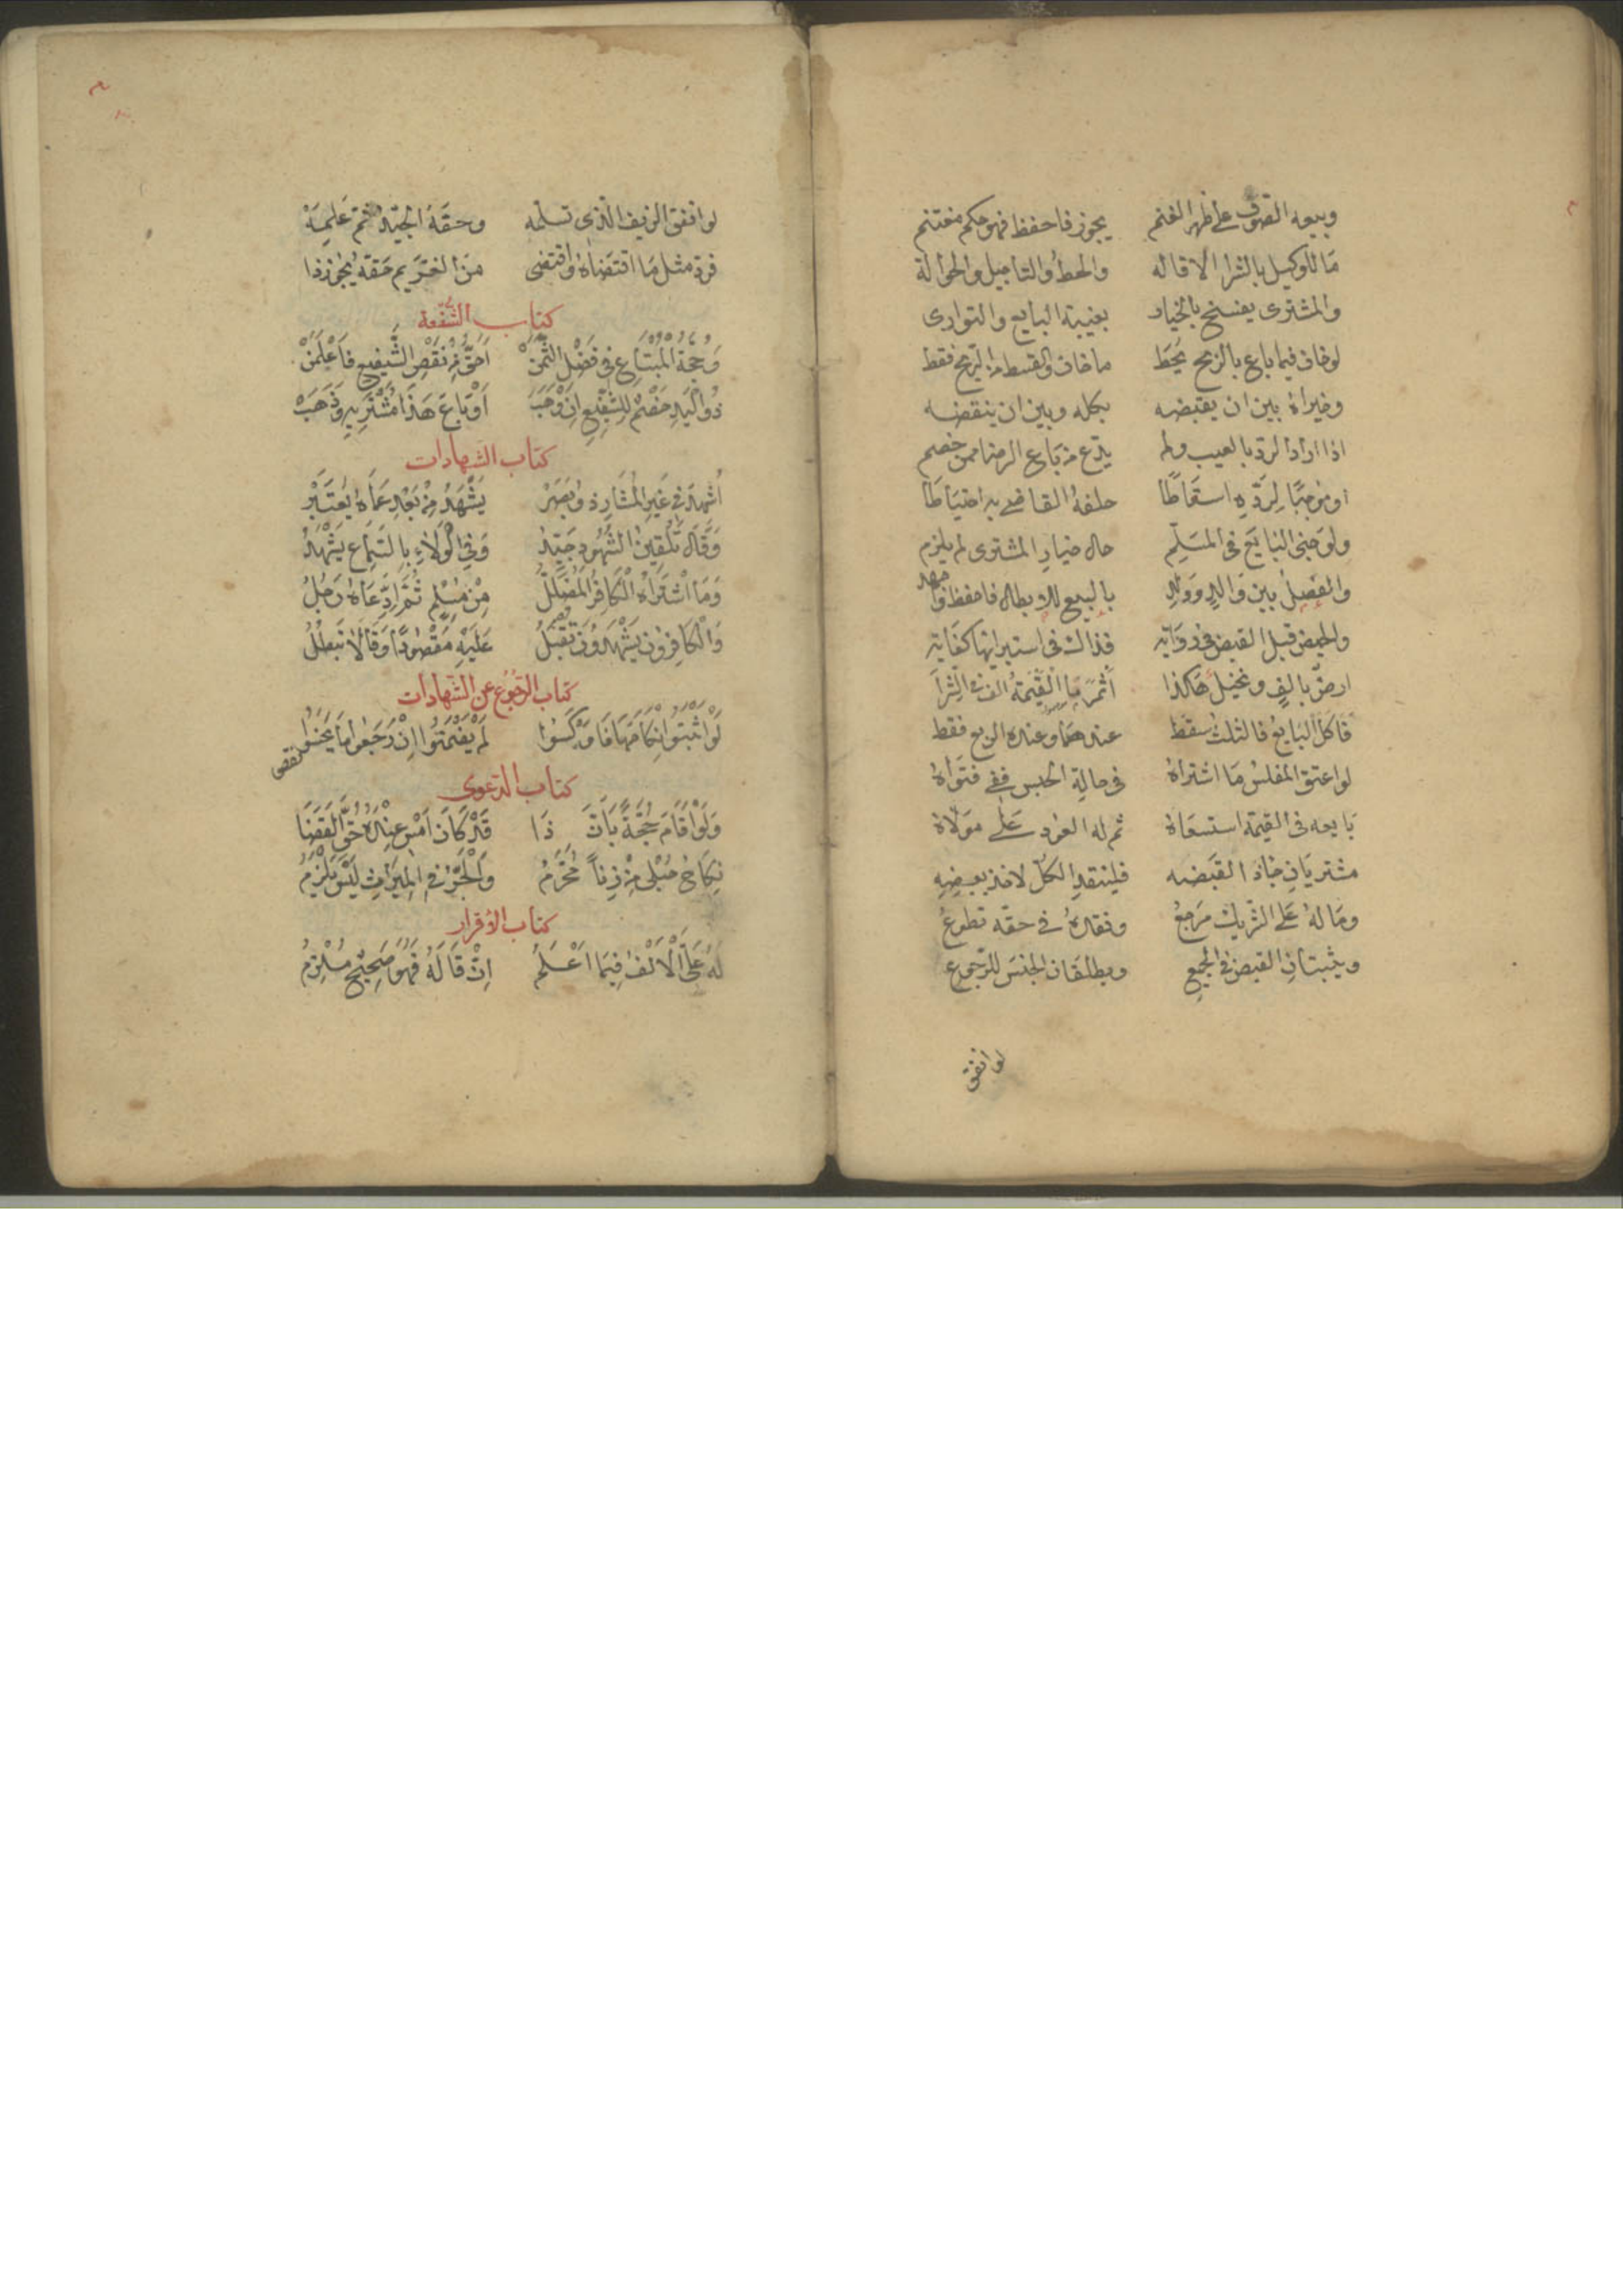 وبيعه الصوف على ظهر الغنم يجوز فاحفظ فهو حكم مغتنم
مَا للوكيل بالشرا الاقاله والحطُ والتاجيل والحوالة
والمشترى يفسخ بالخيار بغيبة البايع والتوارى
لو خان فيما باع بالربح يُحَط ما خان والقسط من الربح فقط
وخيراهُ بين ان يقبضه بكله وبين ان ينقضه
اذا اراد الرد بالعيب ولم يدّع من باع الرضا ممن خصم
او موجبًا لِرَدّهِ اسقاطًا حلفهُ القاضى به احتياطًا
ولو جنى البَايع فى المسَلم حال خيار المشترى لم يلزم
والفصلُ بين وَالدٍ ووَلدِ بالبيع للابطال فاحفظ
والحيض قبل القبض فى روَاية فذاك فى استبرائها كفاية
ارضٌ بالفٍ ونخيلٌ هَاكذا اثمر القيمةُ الف فى الشراَ
فاكل البَايع فالثلث سقط عندهمَا وعنده الربع فقط
لو اعتق المفلس مَا اشتراهُ فى حالة الحبس ففى فتوَاهُ
بَايعه فى القيمة استسعَاهُ ثم له العود عَلى مولاهُ
مشتريَانِ القَبضه فلينقد الكلّ لاخذ بعضِهِ
ومَا لهُ عَلى الشريك مَرجعُ ونقدهُ فى حقّه تطوعُ
ويثبتانِ القبض فى الجميعِ ويطلقان الجنسَ للرجوع
لو انفق
لو انفق الزيف الّذى تسلّمه وحقّهُ الجيّد ثمّ عَلِمَهْ
فردّ مثل مَا اقتضاهُ واقتضى منَ الغريم حَقّهُ يجوز ذا
كتاب الشفعة
وَحُجَّةُ المُبْتَاعِ فى فَضْلِ الثَّمَنْ اَحَقُّ مِنْ نَقْصِ الشَّفِيعِ فَاعْلَمَنْ
ذُو اليَدِ خَصْمٌ لِلشَّفِيعِ اِنْ وَهَبْ اَوْ بَاعَ هَذَا مُشْتَرِيهِ وَذَهَبْ
كتاب الشهادات
اُشْهِدَ فى غَيرِ المُشَارِ ذو بَصَرْ يَشْهَدُ مِنْ بَعْدِ عَمَاهُ يُعْتَبَرْ
وَقَالَ تَلْقِينُ الشُّهُودِ جَيّدُ وَفِى الْوَلَاءِ بِالسَّمَاعِ يَشْهَدُ
وَمَا اشْتَرَاهُ الْكَافِرُ المُضَلَّلُ مِنْ مُسْلِمٍ ثُمَّ ادَّعَاهُ رَجُلُ
وَالْكَافِرُونَ يَشْهَدُونَ تُقْبَلُ عَلَيْهِ مَقْصُودًا وَقَالَا تَبْطُلُ
كتاب الرجوع عن الشهادات
لَوْ اَثْبَتُوا نِكَاحَهَا فَاَوْكَسُوا لَمْ يَضْمَنُوا اِنْ رَجَعُوا مَا يَخَسُوا
نقص
كتاب الدعوى
وَلَوْ اَقَامَ حُجَّةً بِاَنَّ ذَا قَدْ كَانَ اَمْسِ عِنْدَهُ حَقُّ القَضَا
نِكَاحُ حُبْلَى مِنْ زِنًا مُحَرَّمُ وَالْجَبْرُ فى المِيرَاثِ لَيْسَ يَلْزَمُ
كتاب الاقرار
لَهُ عَلَىَّ الْاَلْفُ فِيمَا اَعْلَمُ اِنْ قَالَهُ فَهْوَ صَحِيْحٌ مُلْزِمُ